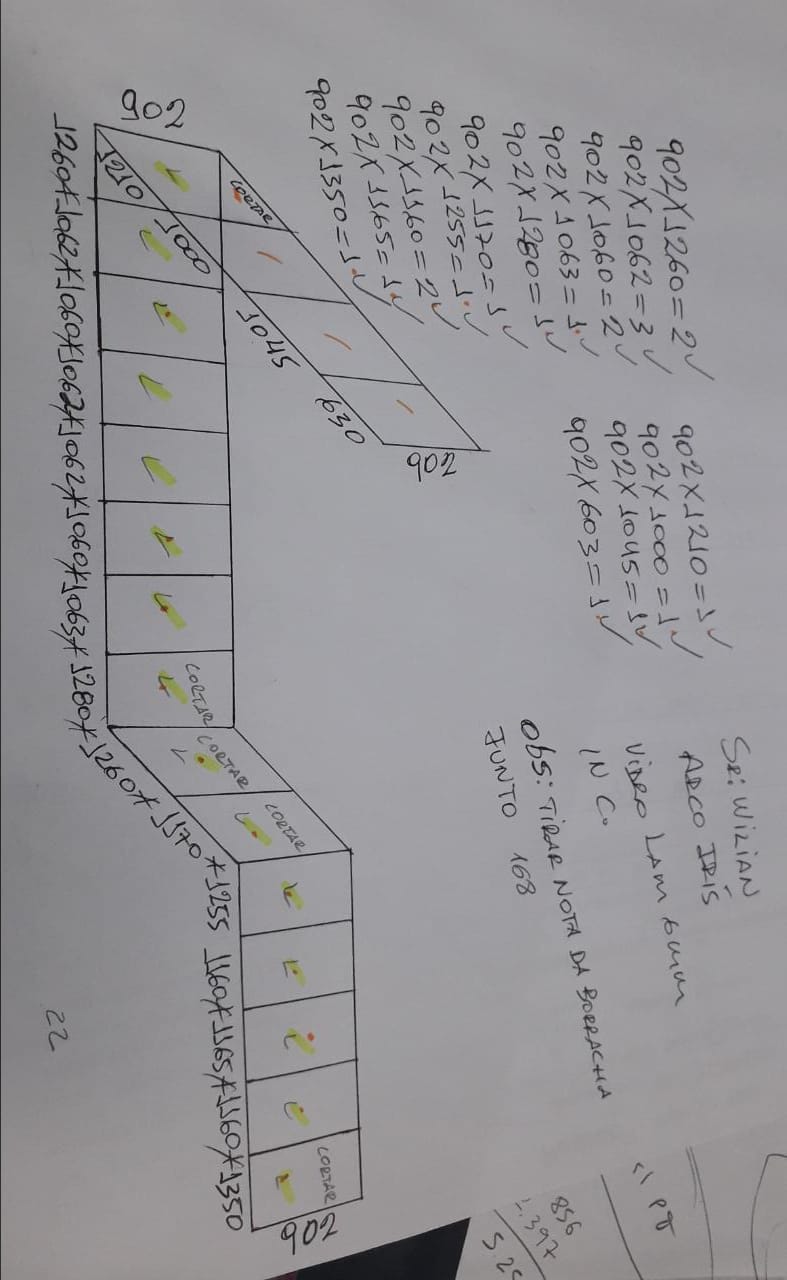 902X1260=2✓
902X1062=3✓
902X1060=2✓
902X1063=1✓
902X1280=1✓
902X1170=1✓
902X1255=1✓
902X1160=2✓
902X1165=1✓
902X1350=1✓
902X1210=1✓
902X1000=1✓
902X1045=1✓
902X603=1✓
Sr: WILIAN
ARCO IRÍS
VIDRO LAM 6mm
INC.
Obs: TIRAR NOTA DA BORRACHA
JUNTO 168
902
1210
1000
1045
630
902
CORTAR
CORTAR
CORTAR
CORTAR
CORTAR
1260*1062*1060*1062*1062*1060*1063*1280*1260*1170*1255 1160*1165*1160*1350
902
22
856
397